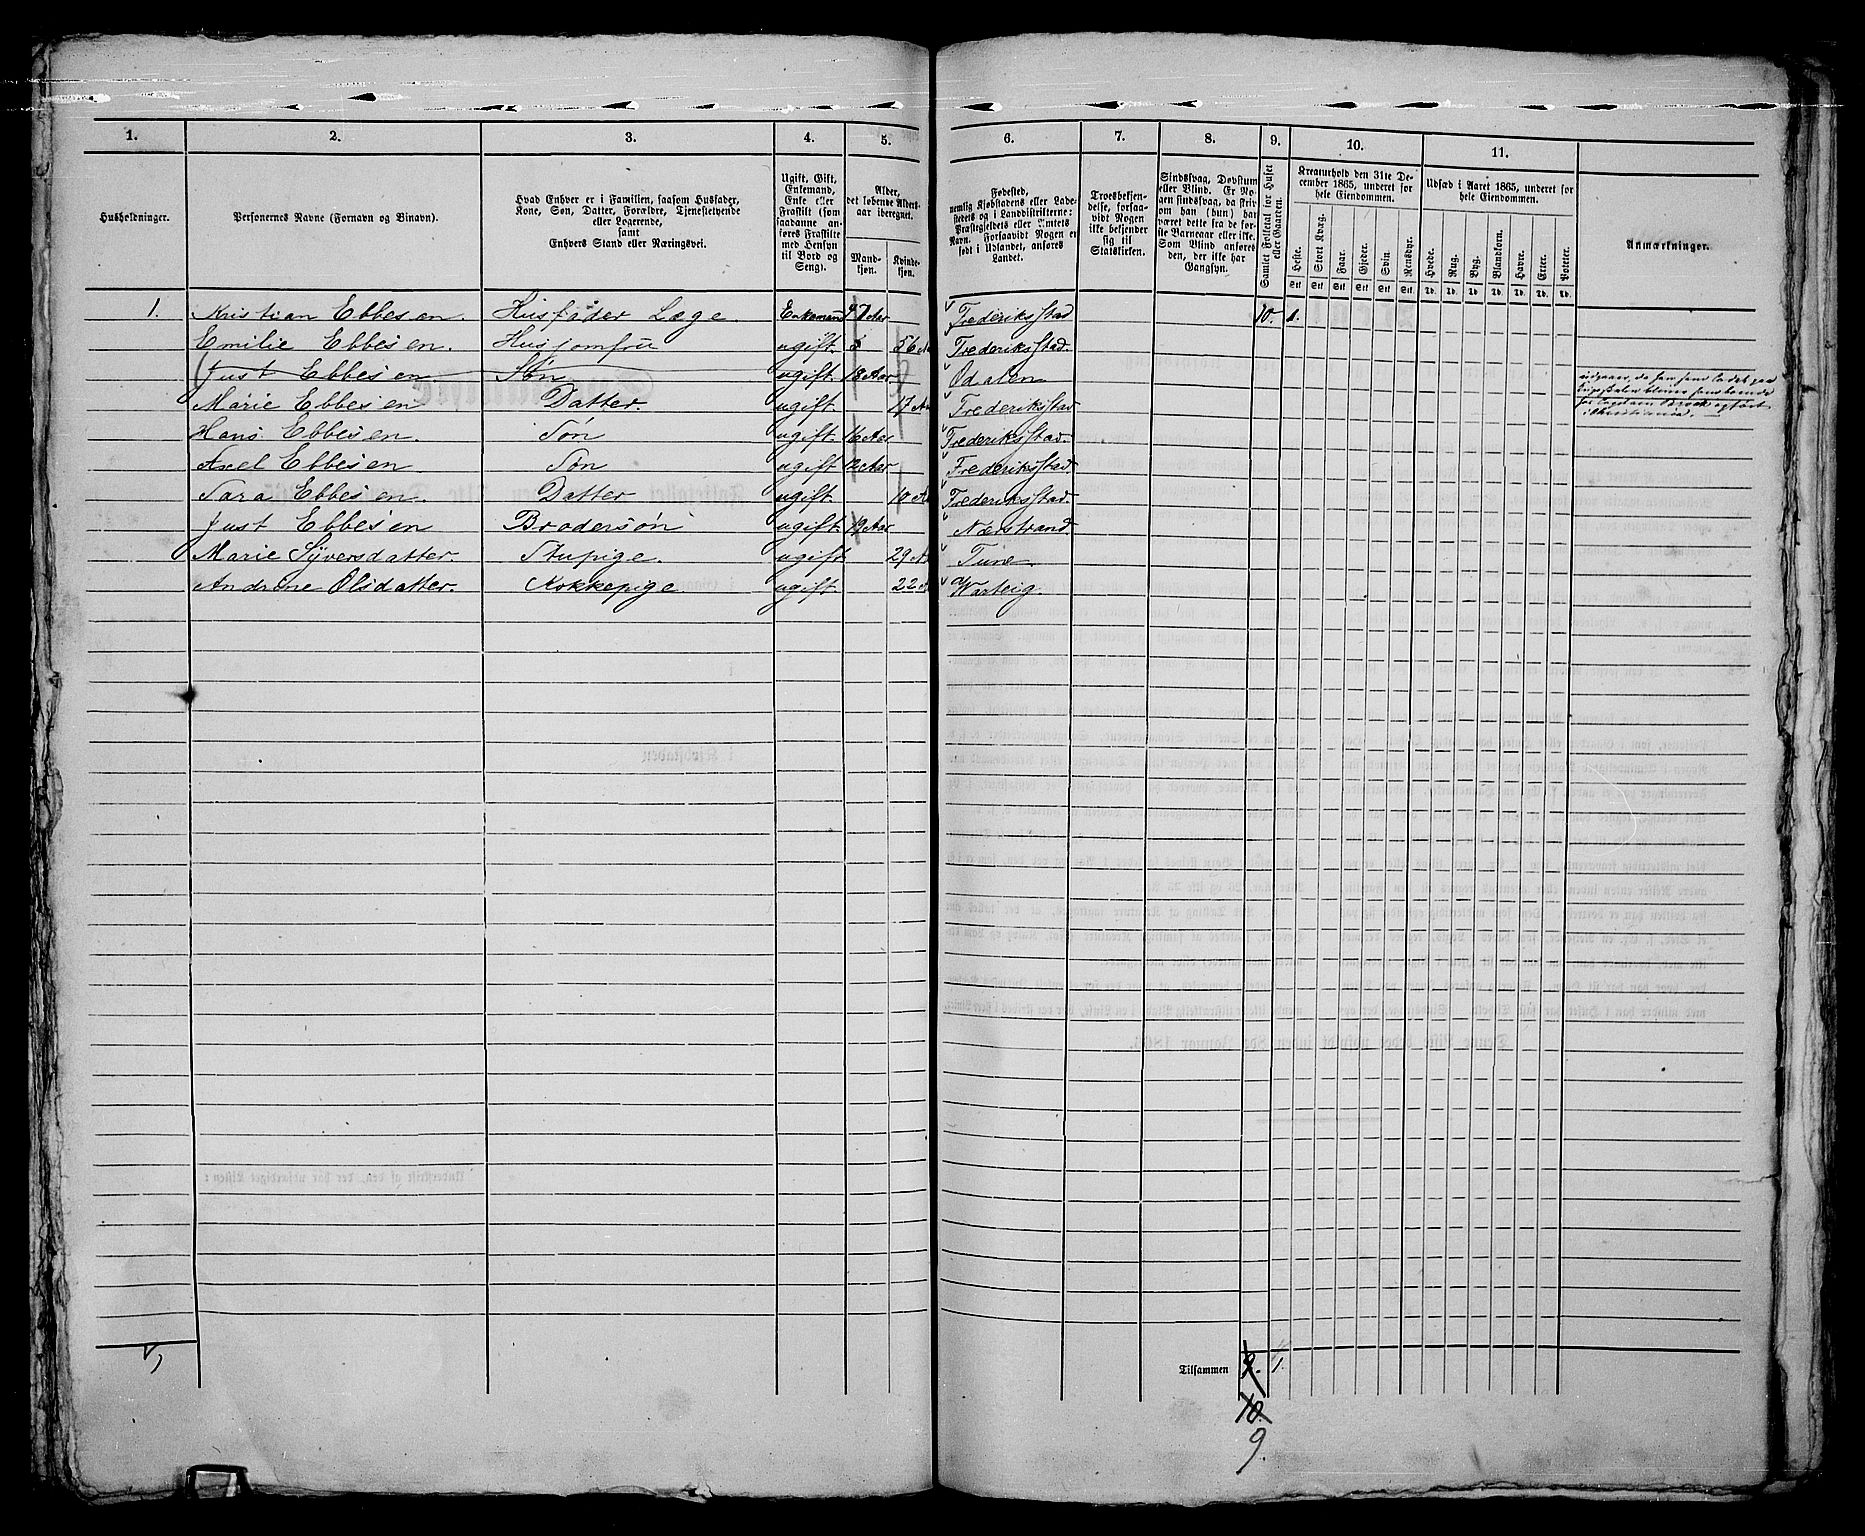 1. 2. 3. 4. 5. 6. 7. 8. 9. 10. 11.
Husholdninger.
Personernes Navne (Fornavn og Binavn).
Hvad Enhver er i Familien, saasom Husfader,
Kone, Søn, Datter, Forældre, Tjenestetyende
eller Logerende,
samt
Enhvers Stand eller Næringsvei.
Ugift, Gift,
Enkemand,
Enke eller
Fraskilt (som
saadanne an-
føres Fraskilte
med Hensyn
til Bord og
Seng).
Alder,
det løbende Alders-
aar iberegnet.
Mand-
kjøn.
Kvinde-
kjøn.
Fødested,
nemlig Kjøbstadens eller Lade-
stedets og i Landdistrikterne:
Præstegjeldets eller Amtets
Navn. Forsaavidt Nogen er
født i Udlandet, anføres
Landet.
Troesbekjen-
delse, forsaa-
vidt Nogen
ikke bekjender
sig til
Statskirken.
Sindssvag, Døvstum
eller Blind. Er No-
gen sindssvag, da skriv
om han (hun) har
været dette fra de før-
ste Barneaar eller ikke.
Som Blind anføres
den, der ikke har
Gangsyn.
Samlet Folketal for Huset
eller Gaarden.
Kreaturhold den 31te De-
cember 1865, underet for
hele Eiendommen.
Heste. Stort Kvæg. Faar. Gjeder. Svin. Rensdyr.
Stk Stk Stk Stk Stk Stk
Udsæd i Aaret 1865, underet for
hele Eiendommen.
Hvede. Rug. Byg. Blandkorn. Havre. Erter. Poteter.
Td. Td. Td. Td. Td. Td. Td.
Anmærkninger.
1. Kristian Ebbesen. Husfader Læge. Enkemand 47 Aar Frederiksstad 10. 1.
Emilie Ebbesen. Husjomfru ugift. 56 A Frederiksstad.
Just Ebbesen Søn ugift. 18 Aar Odalen
Marie Ebbesen Datter. ugift. 17 A Frederiksstad
Hans Ebbesen. Søn ugift. 16 Aar Frederiksstad.
Axel Ebbesen Søn ugift 12 Aar Frederiksstad
Sara Ebbesen. Datter ugift. 10 A Frederiksstad.
Just Ebbesen Brodersøn ugift 19 Aar Nærstrand
Marie Syversdatter. Stupige. ugift 29 A Tune
Andrine Olsdatter. Kokkepige ugift. 22 A Warteig.
Tilsammen 9. 1.
10.
9.